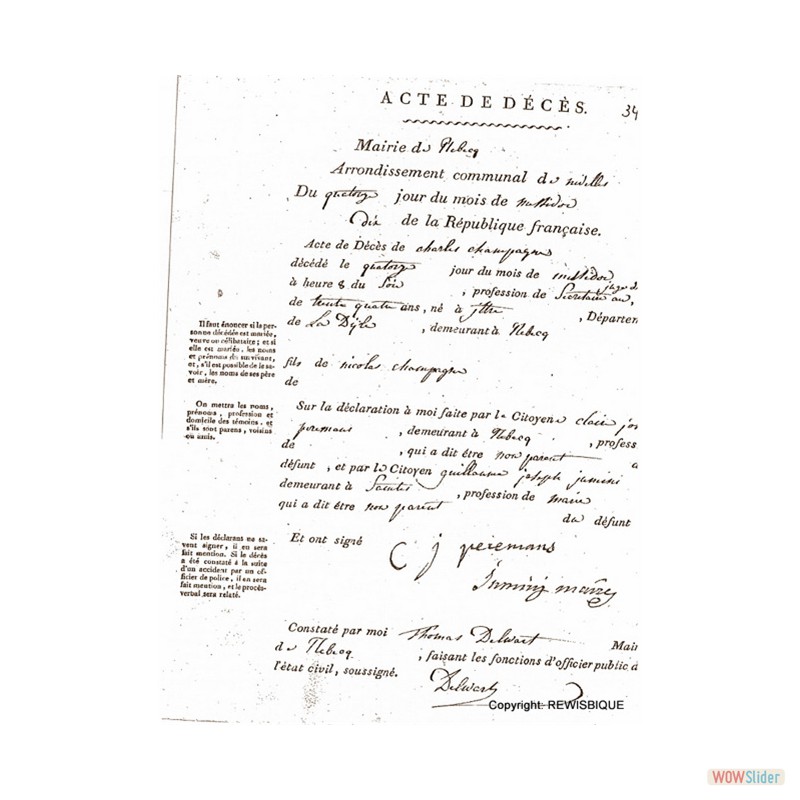 ACTE DE DÉCÈS. 34
Mairie de Rebecq
Arrondissement communal de nivelles
Du quatorze jour du mois de messidor
dix de la République française.
Acte de Décès de charles champagne
décédé le quatorze jour du mois de messidor
à heure 8 du Soir , profession de Secretaire au
juge de
de trente quatre ans, né à , Départem
de La Dijle , demeurant à Rebecq
Il faut énoncer si la per-
sonne décédée est mariée,
veuve ou célibataire ; et si
elle est mariée, les noms
et prénoms du survivant,
et, s'il est possible de le sa-
voir, les noms de ses père
et mère.
fils de nicolas champagne
de
On mettra les noms,
prénoms, profession et
domicile des témoins, et
s'ils sont parens, voisins
ou amis.
Sur la déclaration à moi faite par le Citoyenne claire jos
peremans , demeurant à Rebecq , profess
de , qui a dit être non parent d
défunt, et par le Citoyen guillaume joseph
demeurant à Saintes , profession de maire
qui a dit être non parent du défunt
Si les déclarans ne sa-
vent signer, il en sera
fait mention. Si le décès
a été constaté à la suite
d'un accident par un of-
ficier de police, il en sera
fait mention, et le procès-
verbal sera relaté.
Et ont signé C j peremans
maire
Constaté par moi Thomas Delwart Mair
de Rebecq , faisant les fonctions d'officier public d
l'état civil, soussigné.
Delwart
Copyright: REWISBIQUE
WOWSlider